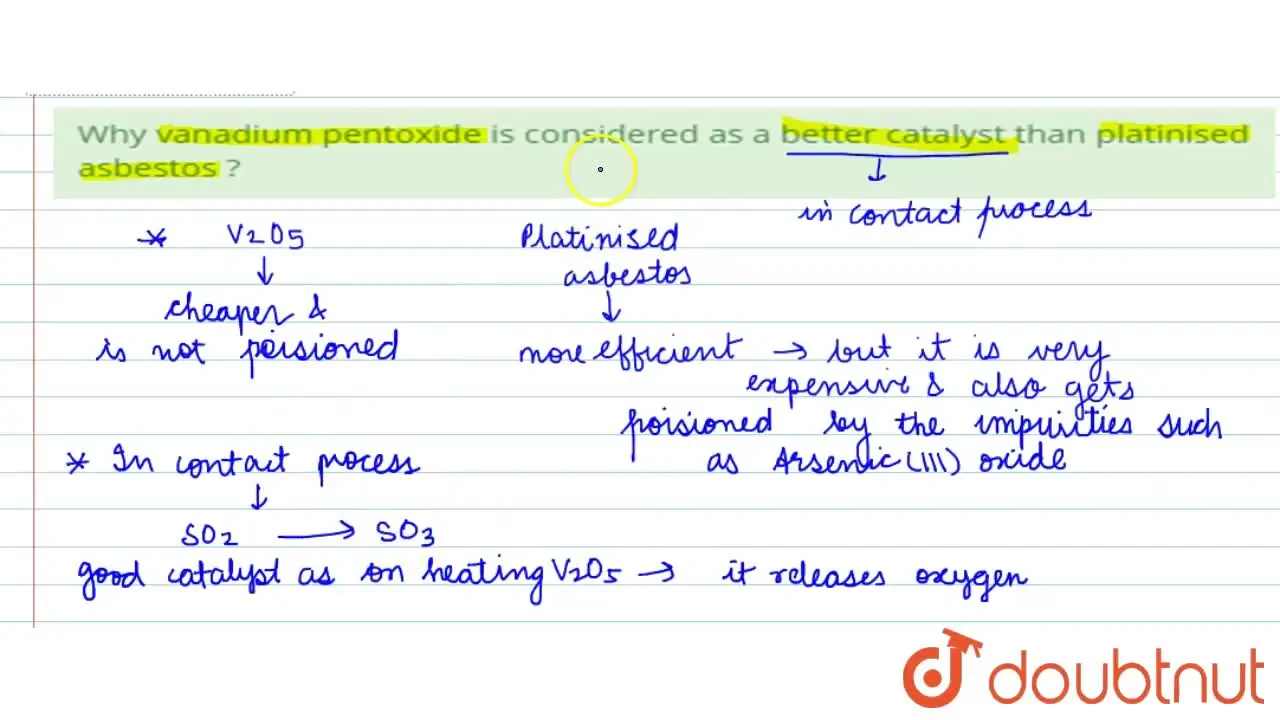 Why vanadium pentoxide is considered as a better catalyst than platinised
asbestos ?
in contact process
* V2O5
cheaper &
is not poisioned
Platinised
asbestos
more efficient → but it is very
expensive & also gets
poisioned by the impurities such
as Arsenic (III) oxide
* In contact process
SO2 → SO3
good catalyst as on heating V2O5 → it releases oxygen
doubtnut